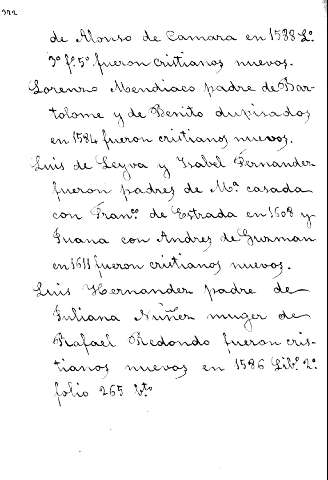 322
de Alonso de Camara en 1588 Lº
3º fº 5º fueron cristianos nuevos.
Lorenzo Mendiaco padre de Bar-
tolome y de Benito
en 1584 fueron cristianos nuevos.
Luis de Leyva y Isabel Fernandez
fueron padres de Mª casada
con Franº de Estrada en 1608 y
Juana con Andres de Guzman
en 1611 fueron cristianos nuevos.
Luis Hernandez padre de
Juliana Nuñez muger de
Rafael Redondo fueron cris-
tianos nuevos en 1586 Libº 2º
folio 265 bto